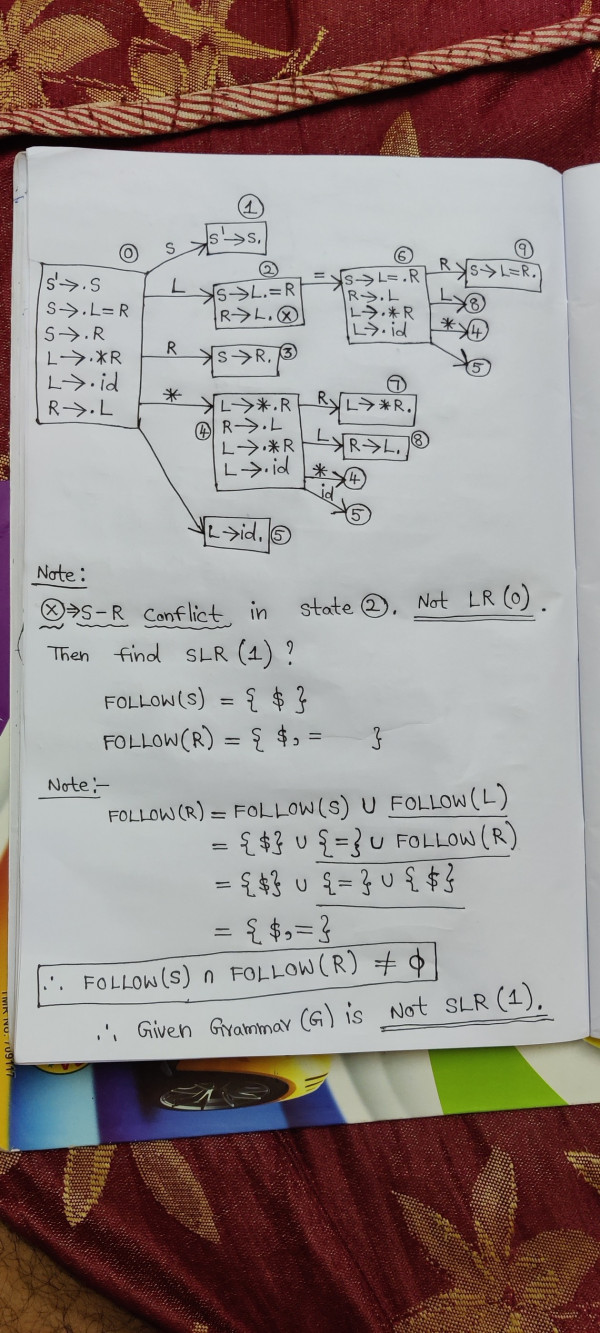 ①
⓪ S S'→S.
S'→.S
S→.L=R
S→.R
L→.*R
L→.id
R→.L
L ②
S→L.=R
R→L. ⓧ
= ⑥
S→L=.R
R→.L
L→.*R
L→.id
R ⑨
S→L=R.
L ⑧
* ④
⑤
R S→R. ③
* ④
L→*.R
R→.L
L→.*R
L→.id
R ⑦
L→*R.
L R→L. ⑧
* ④
id ⑤
L→id. ⑤
Note:
ⓧ⇒S-R conflict in state ②. Not LR(0).
Then find SLR(1)?
FOLLOW(S) = { $ }
FOLLOW(R) = { $, = }
Note:-
FOLLOW(R) = FOLLOW(S) ∪ FOLLOW(L)
= {$} ∪ {=} ∪ FOLLOW(R)
= {$} ∪ {=} ∪ {$}
= {$,=}
∴ FOLLOW(S) ∩ FOLLOW(R) ≠ ϕ
∴ Given Grammar (G) is Not SLR(1).